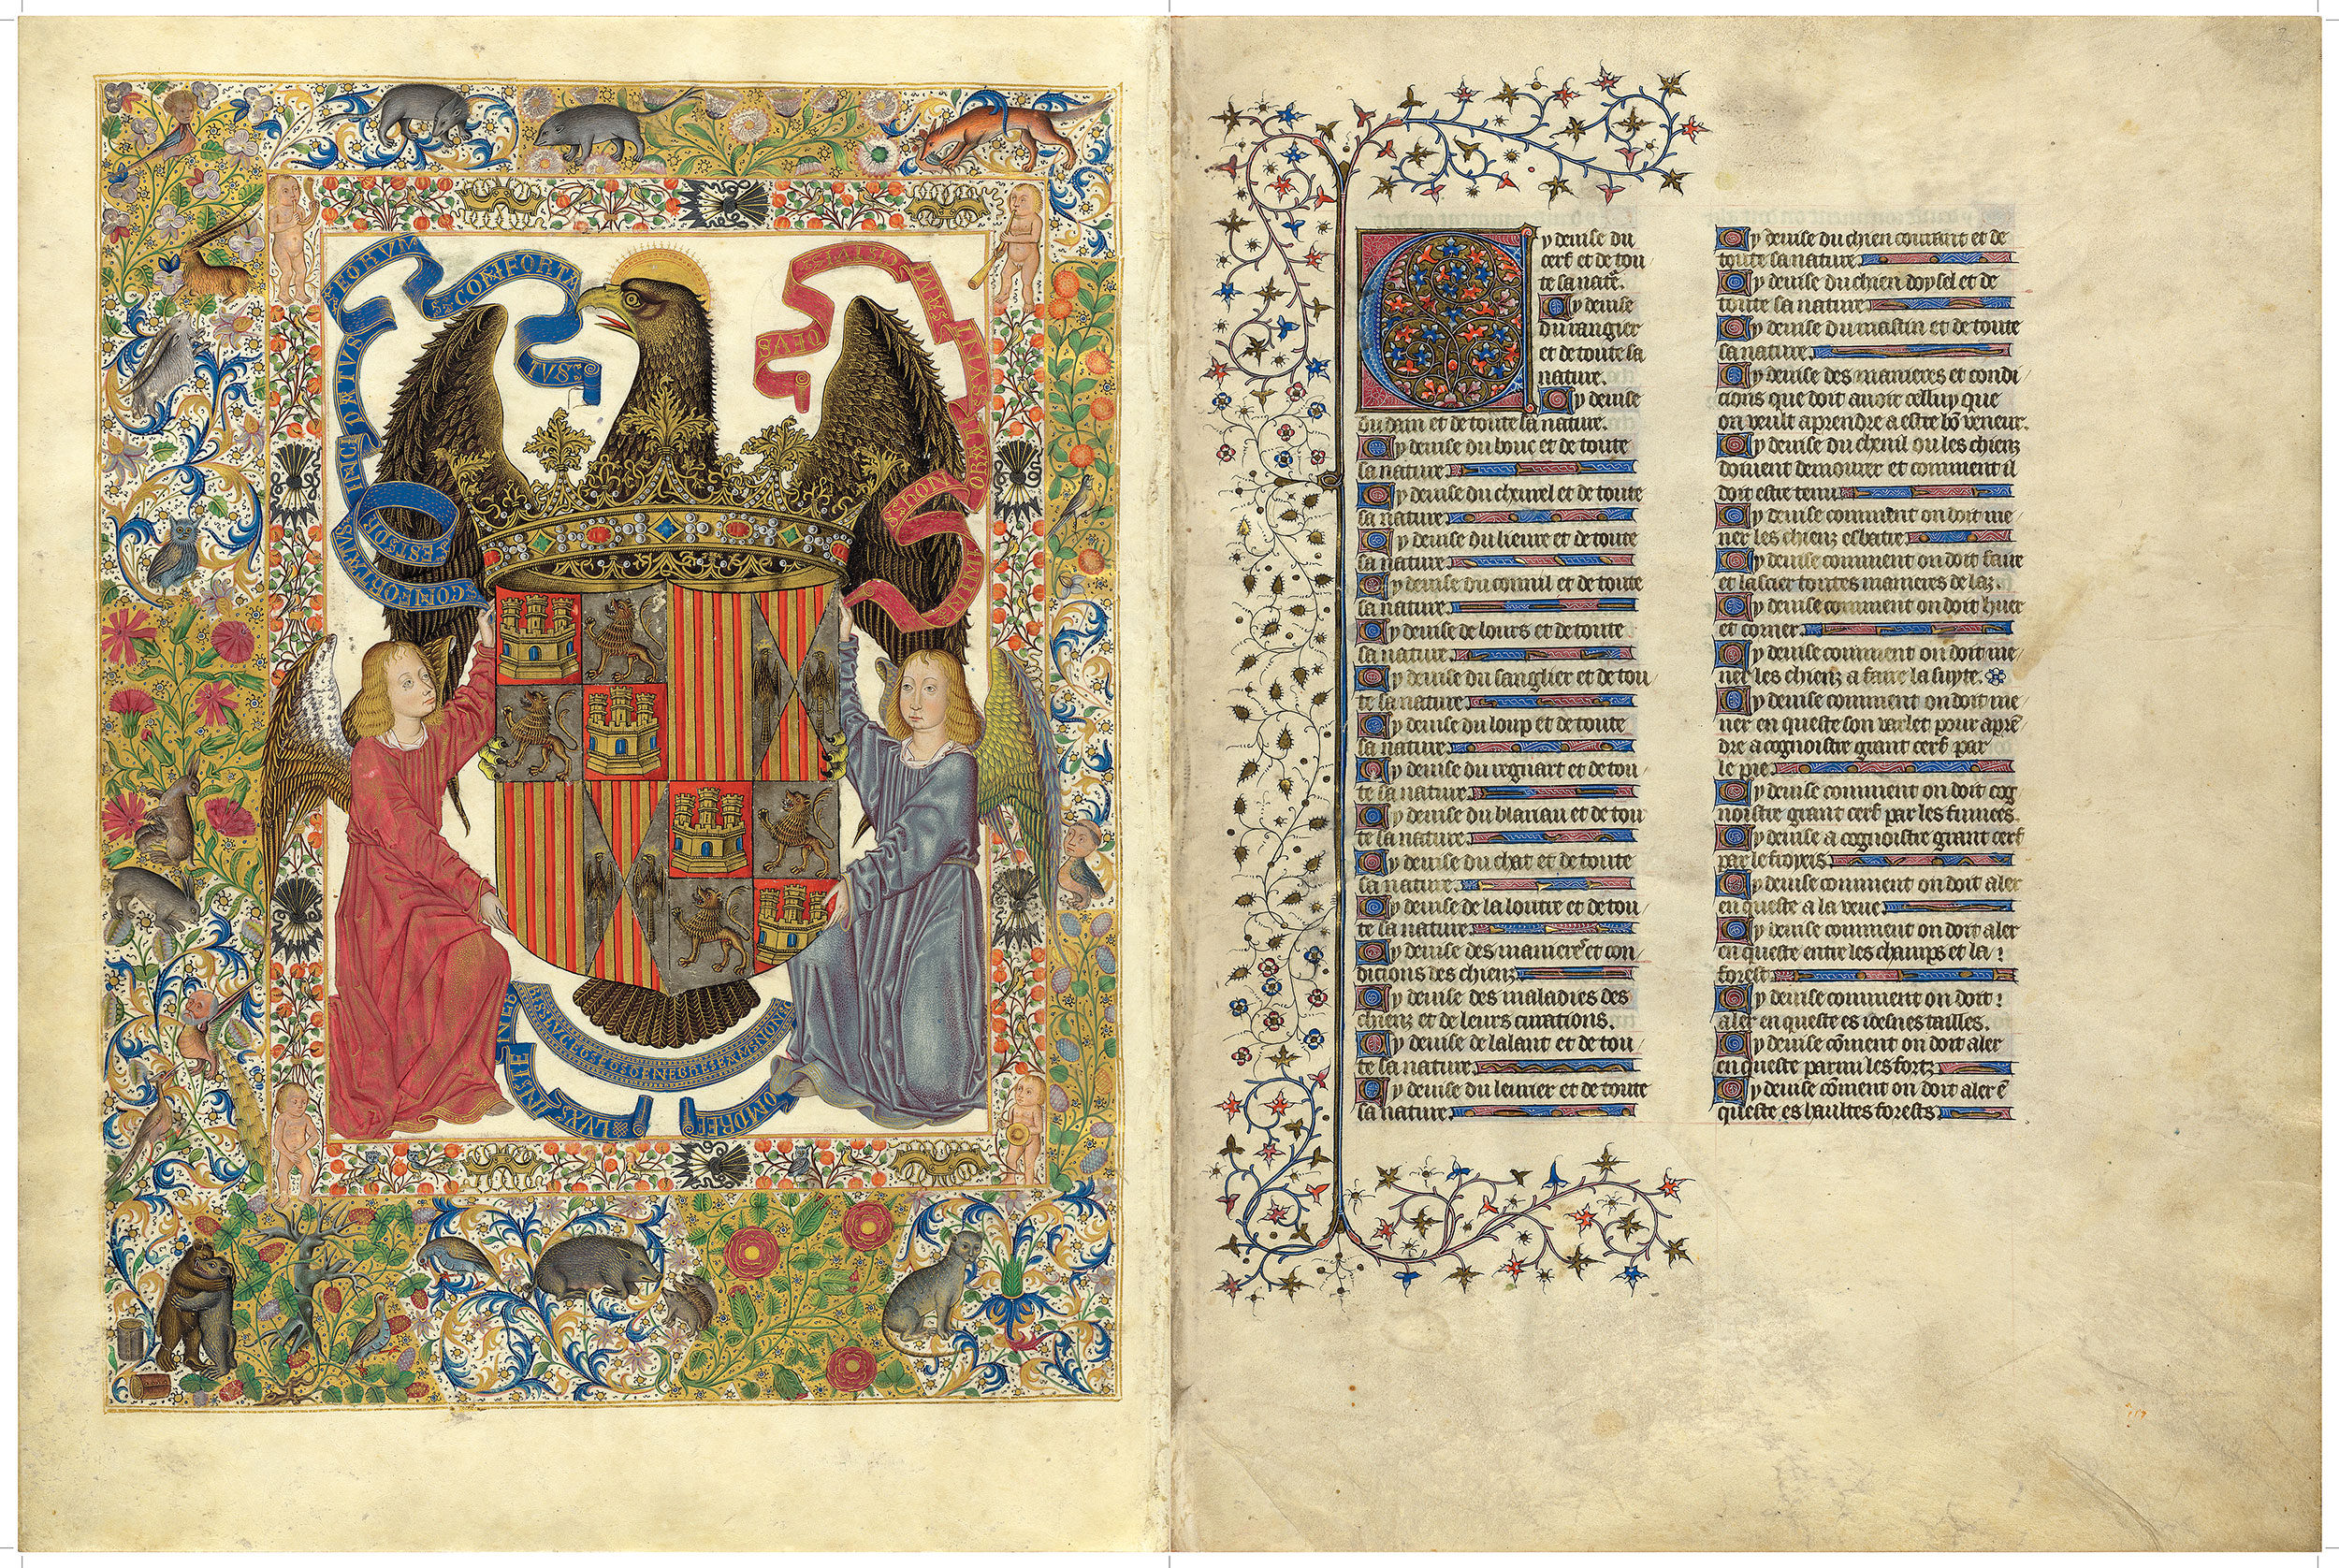 FORVM
CONFORTA
TVS
DEVS
NON
y deuise du
cerf et de tou
te sa natẽ.
Cy deuise
du rangier
et de toute sa
nature.
Cy deuise
du dain et de toute sa nature.
Cy deuise du bouc et de toute
sa nature.
Cy deuise du cheurel et de toute
sa nature.
Cy deuise du lieure et de toute
sa nature.
Cy deuise du connil et de toute
sa nature.
Cy deuise de lours et de toute
sa nature.
Cy deuise du sanglier et de tou
te sa nature.
Cy deuise du loup et de toute
sa nature.
Cy deuise du regnart et de tou
te sa nature.
Cy deuise du blariau et de tou
te sa nature.
Cy deuise du chat et de toute
sa nature.
Cy deuise de la loutre et de tou
te sa nature.
Cy deuise des manieres et con
dicions des chienz
Cy deuise des maladies des
chienz et de leurs curations.
Cy deuise de lalant et de tou
te sa nature.
Cy deuise du leurier et de toute
sa nature.
Cy deuise du chien courant et de
toute sa nature.
Cy deuise du chien doysel et de
toute sa nature.
Cy deuise du mastin et de toute
sa nature.
Cy deuise des manieres et condi
cions que doit auoir celluy que
on veult aprendre a estre bõ veneur.
Cy deuise du chenil ou les chienz
doiuent demourer et comment il
doit estre tenu.
Cy deuise comment on doit me
ner les chienz esbatre.
Cy deuise comment on doit faire
et lascier toutes manieres de laz.
Cy deuise comment on doit huer
et corner.
Cy deuise comment on doit me
ner les chienz a faire la suyte.
Cy deuise comment on doit me
ner en queste son varlet pour aprẽ
dre a cognoistre grant cerf par
le pie.
Cy deuise comment on doit cog
noistre grant cerf par les fumees.
Cy deuise a cognoistre grant cerf
par le froyers.
Cy deuise comment on doit aler
en queste a la veue.
Cy deuise comment on doit aler
en queste entre les champs et la
forest.
Cy deuise comment on doit
aler en queste es ieusnes tailles.
Cy deuise cõment on doit aler
en queste parmi les fortz.
Cy deuise cõment on doit aler ẽ
queste es haultes forests.